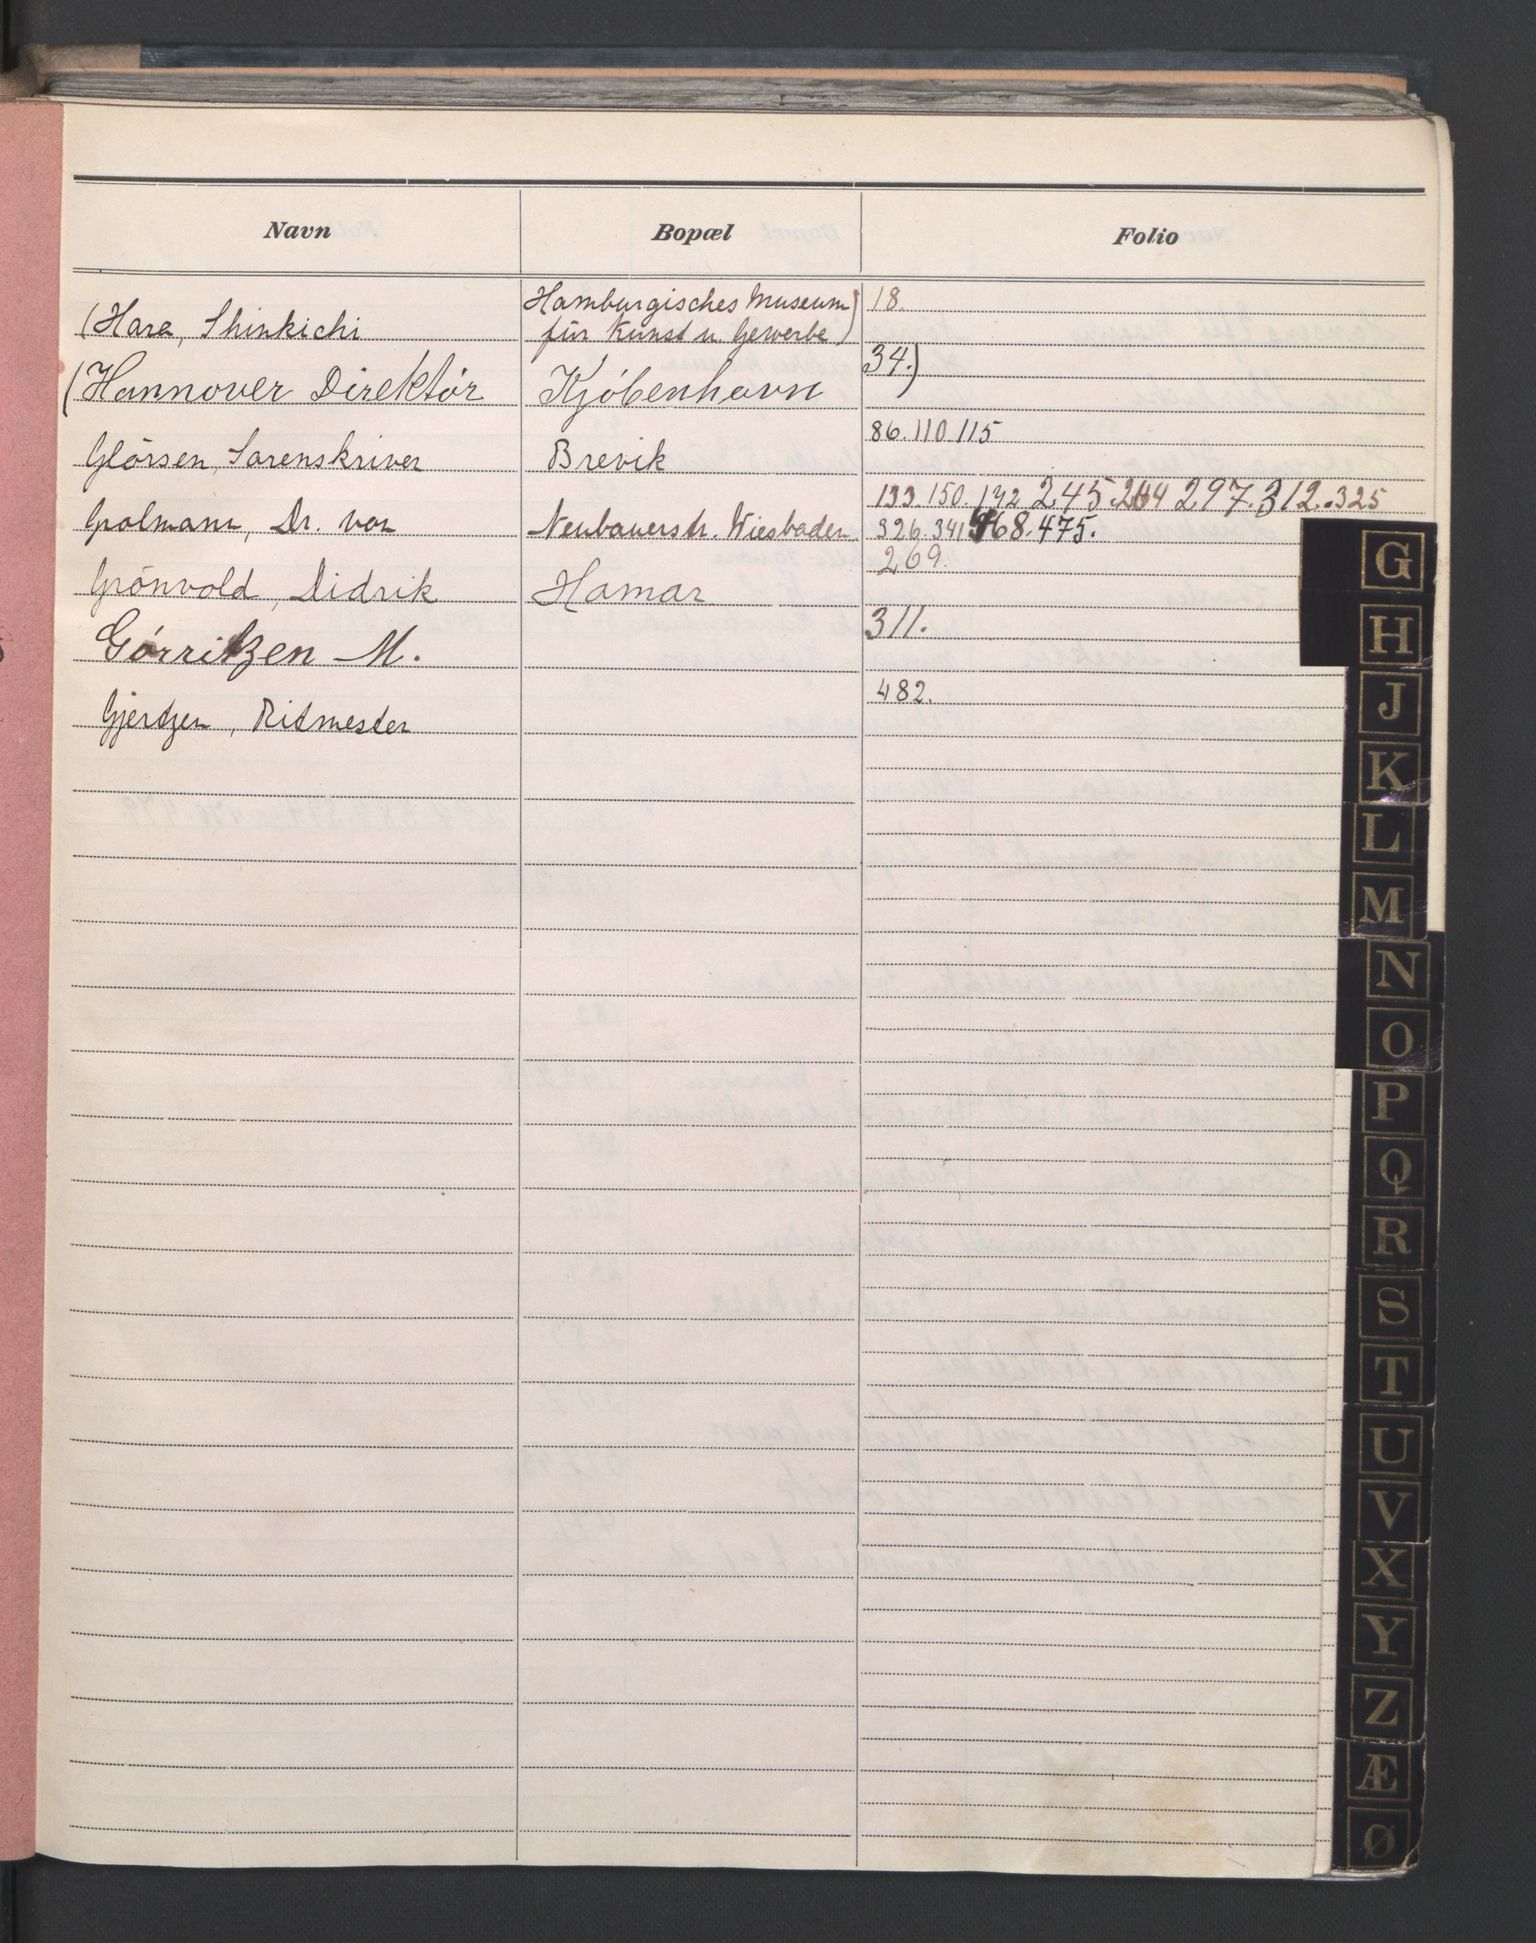 Navn Bopæl Folio
Hamburgisches Museum) 18.
(Hara, Shinkichi für Kunst u. Gewerbe)
34.)
(Hannover Direktör Kjöbenhavn
86. 110. 115
Glörsen, Sorenskriver Brevik
133. 150. 172 245. 264 297. 312. 325
Grolmann, Dr. von Neubauerstr. Wiesbaden 326. 341 468. 475.
269.
Grönvold, Didrik Hamar
311.
Görritzen M.
482.
Gjertzen, Ritmester
G
H
J
K
L
M
N
O
P
Q
R
S
T
U
V
X
Y
Z
Æ
Ø